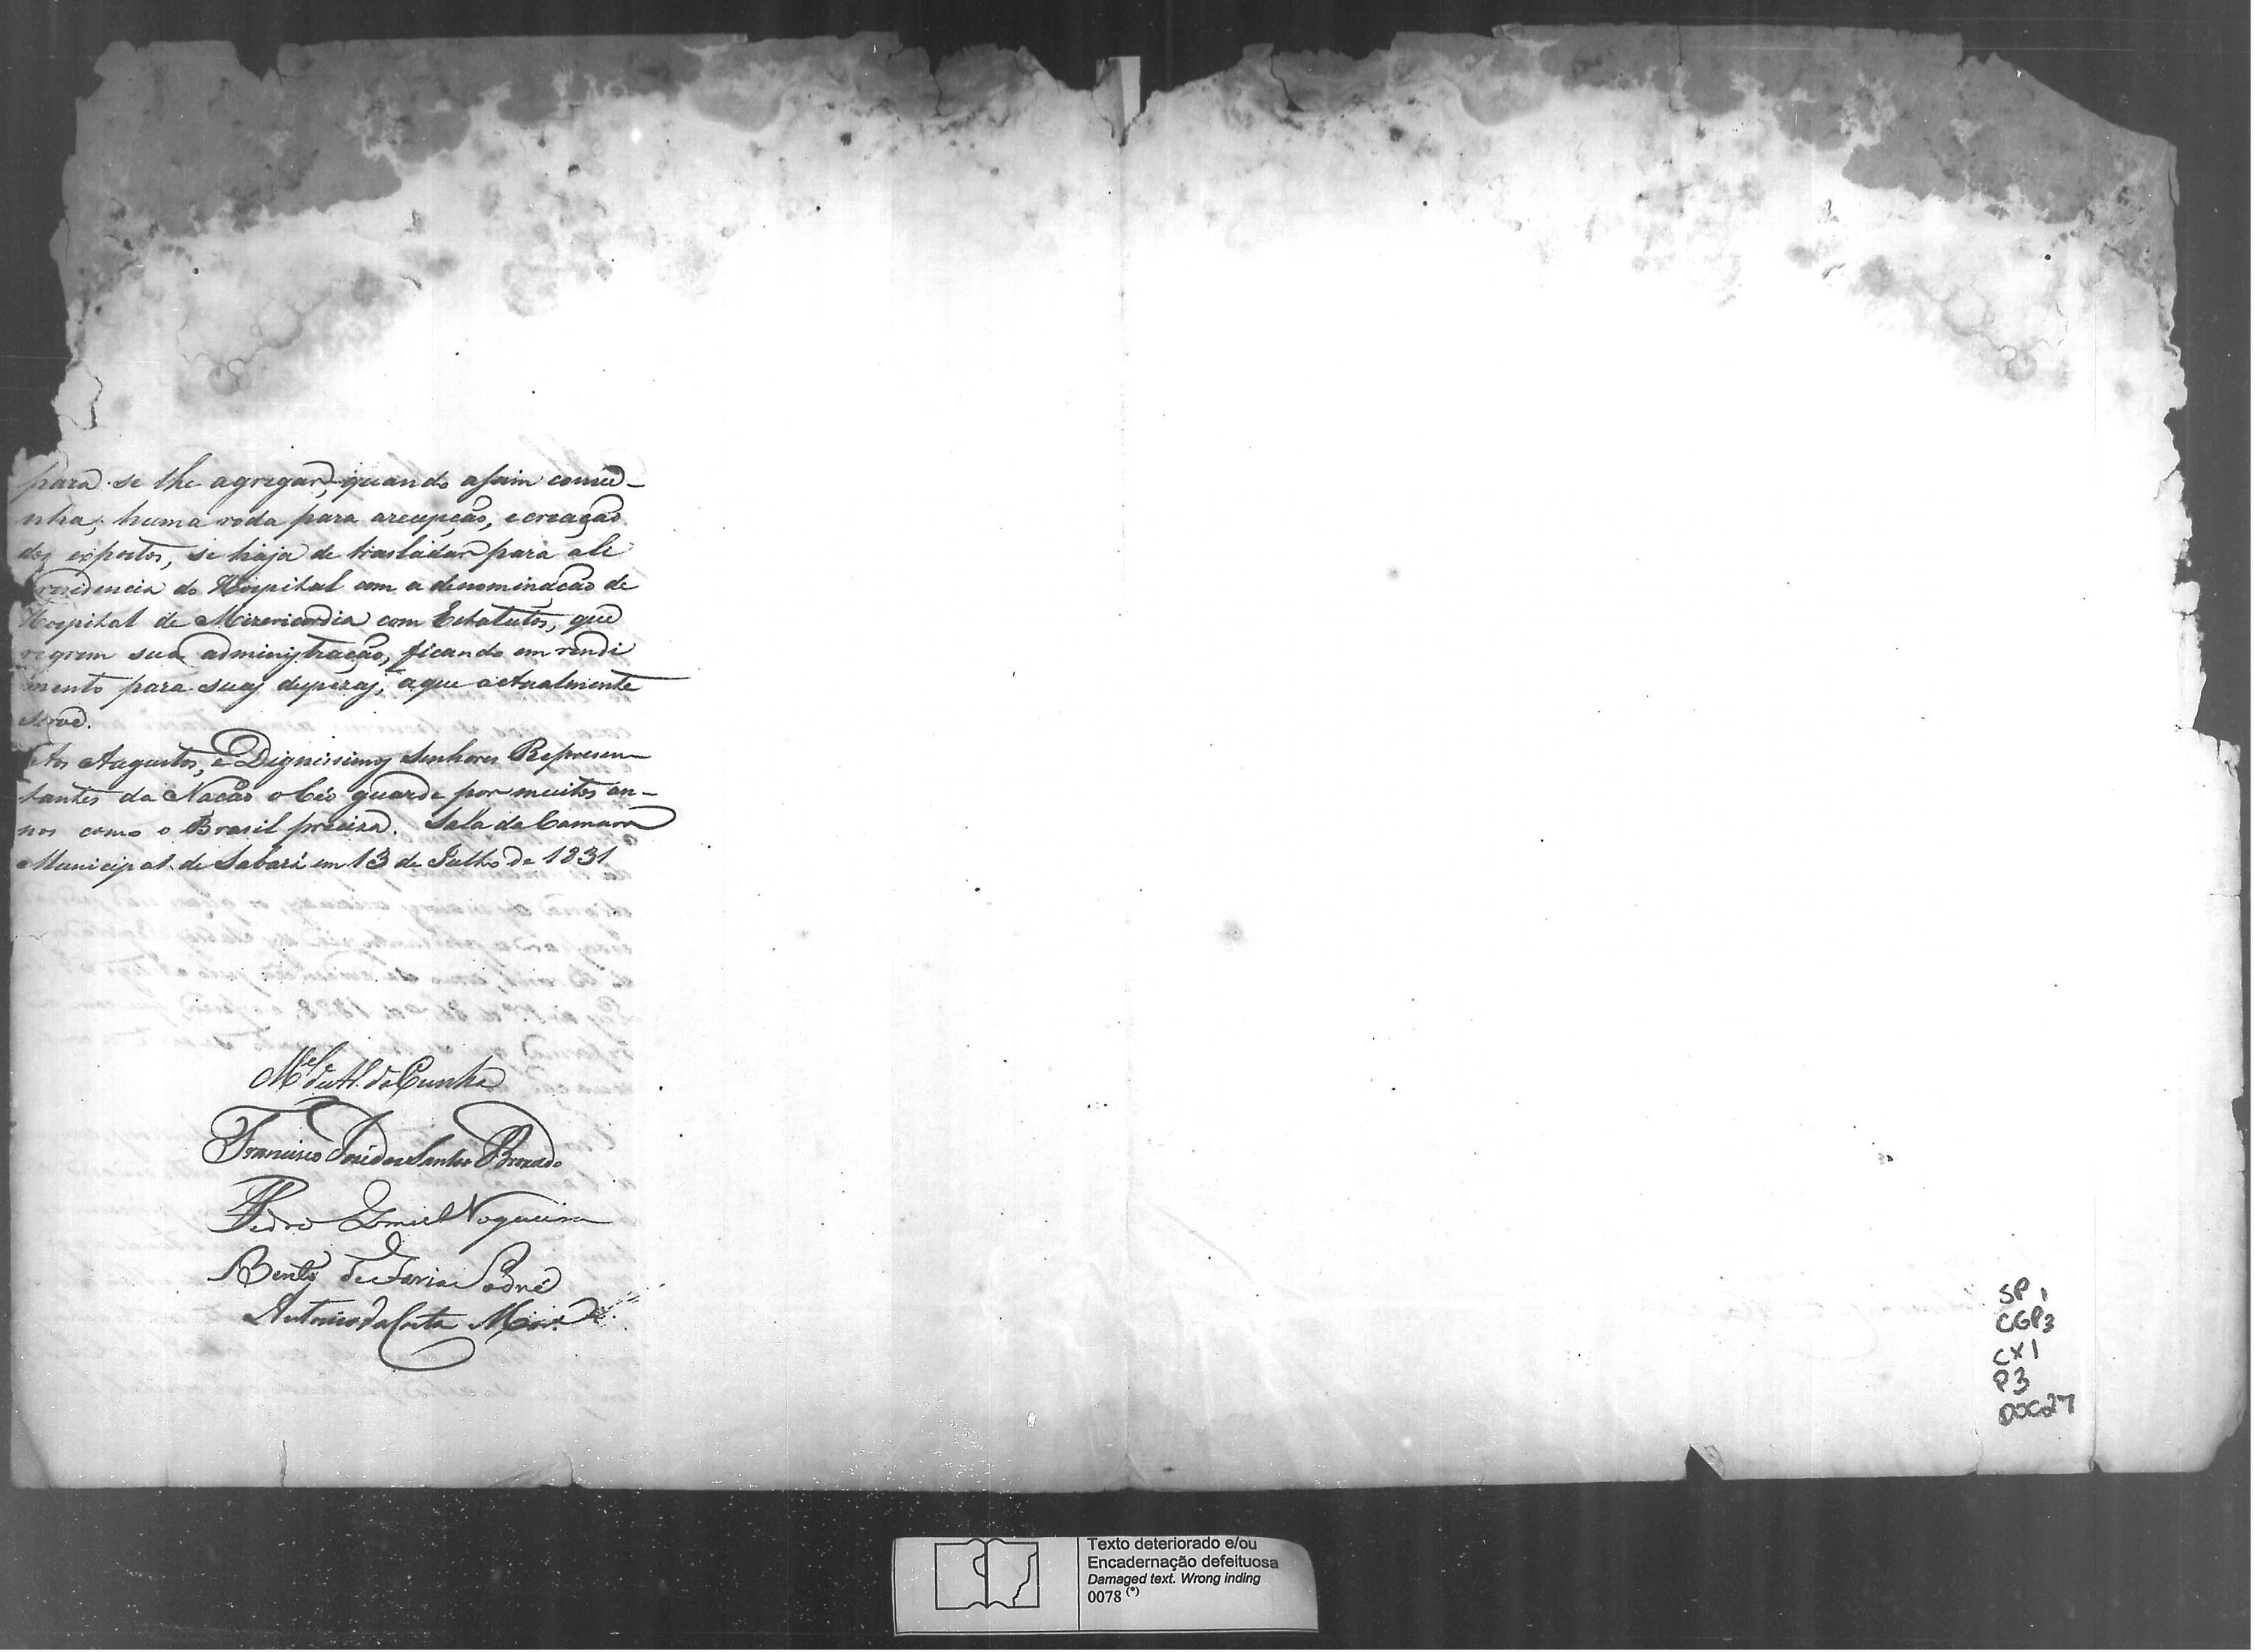 para se lhe agregar, quando assim conve-
nha, huma roda para arecepção, ecreação
dos expostos, se haja de trasladar para ali
residencia do Hospital com a denominação de
Hospital de Mizericordia com Estatutos, que
regrem sua administração, ficando em rendi
mento para suas despezas, aque actualmente
serve.
Aos Augustos, e Dignissimos Senhores Represen-
tantes da Nação o Céo guarde por muitos an-
nos como o Brasil preciza. Sala da Camara
Municipal de Sabará em 13 de Julho de 1831
Mel de da Cunha
Francisco José dos Santos
Pedro Gomes Nogueira
Bento de Faria Sodré
Antonio da Costa
SP 1
CGP3
CX1
P3
DOC27
Texto deteriorado e/ou
Encadernação defeituosa
Damaged text. Wrong inding
0078 (*)